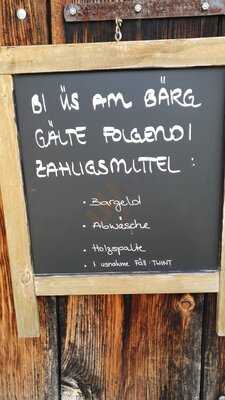 BI ÜS AM BÄRG
GÄLTE FOLGENDI
ZAHLIGSMITTEL :
• Bargeld
• Abwäsche
• Holzspalte
• I usnahme Fäll • TWINT